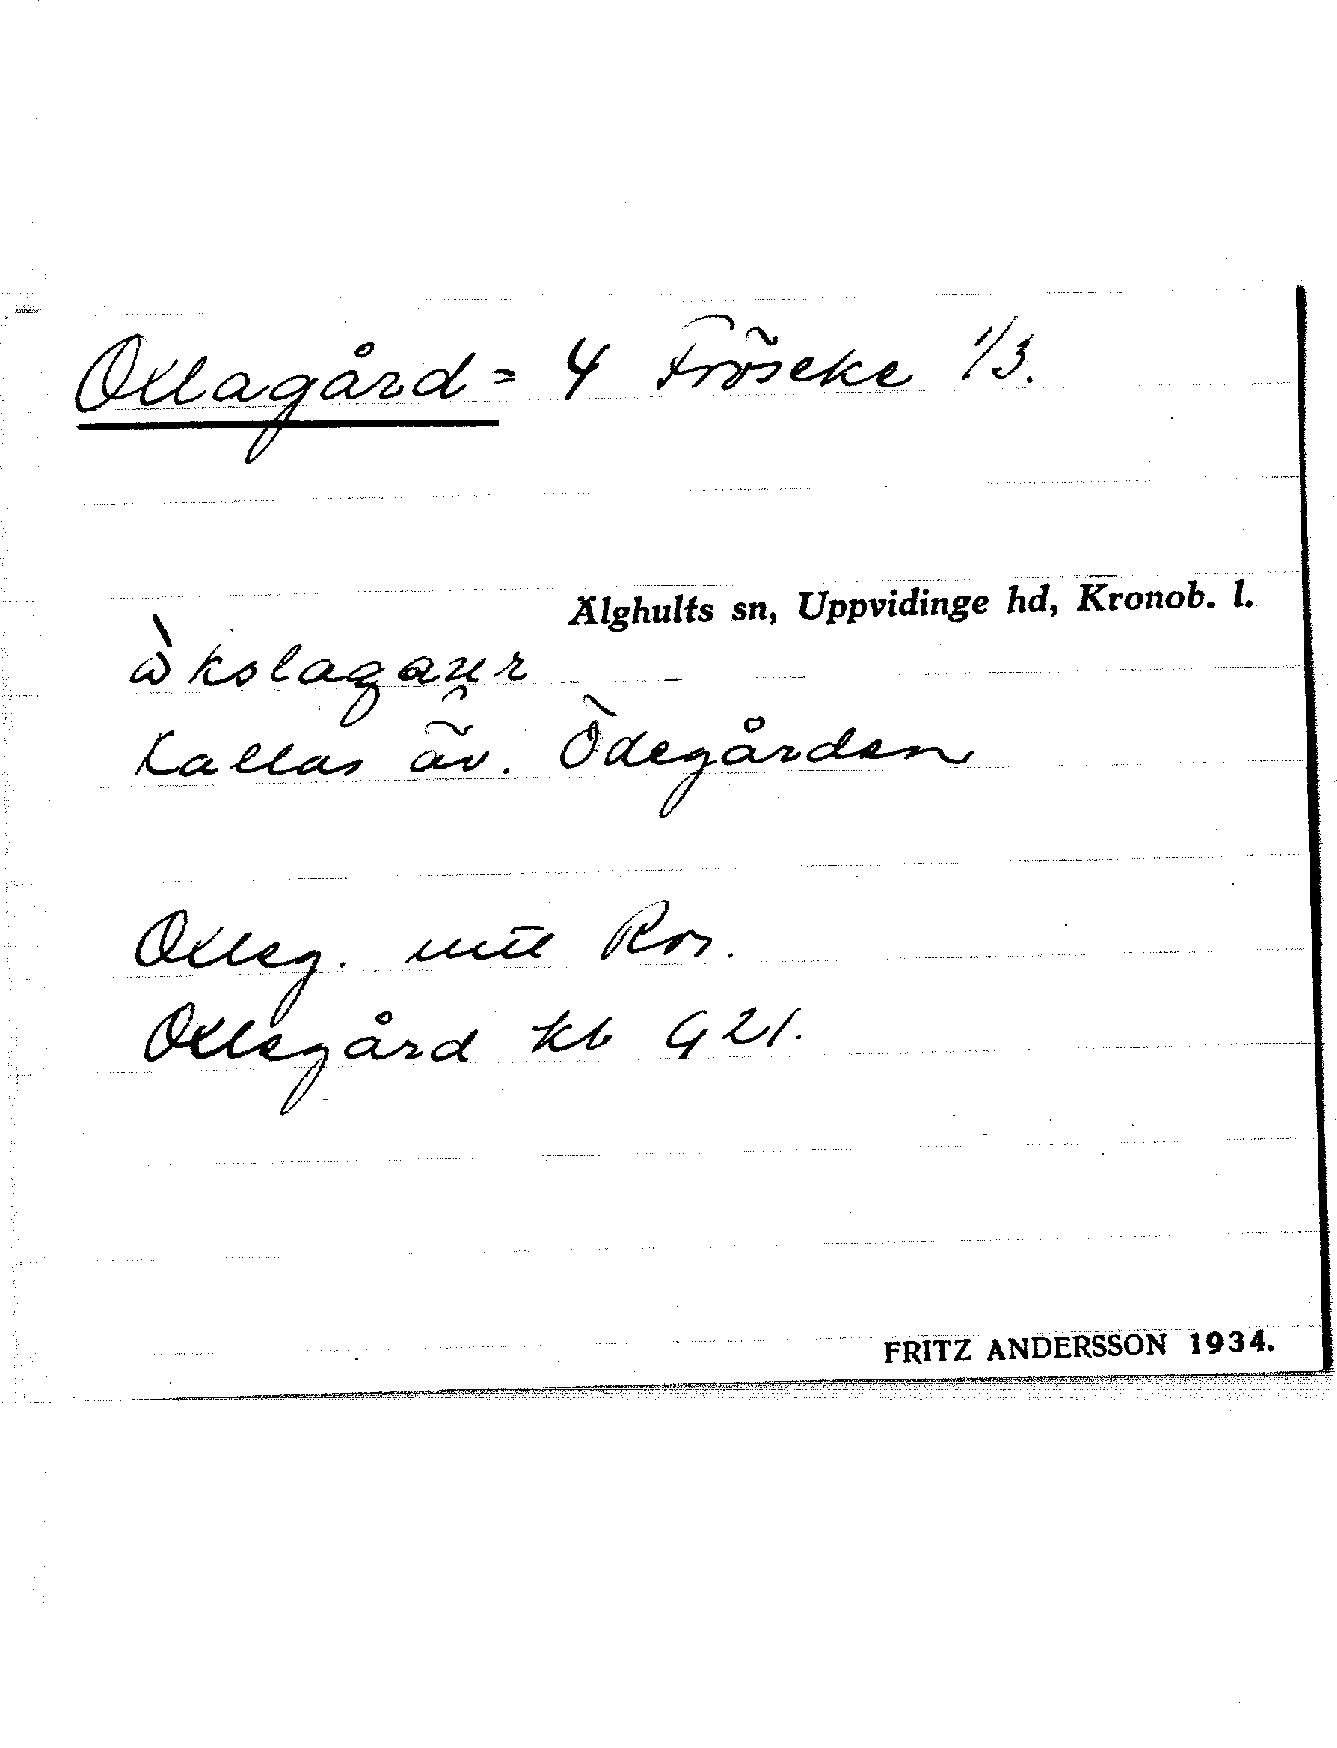 Oxlagård = 4 Fröseke 1/3.
Älghults sn, Uppvidinge hd, Kronob. l.
Kallas äv. Ödegården
Oxleg. mtl Ros.
Oxlegård kb G 21.
FRITZ ANDERSSON 1934.